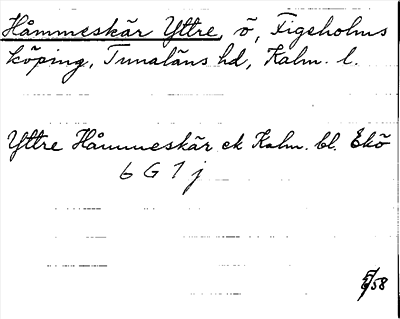 Håmmeskär Yttre, ö, Figeholms
köping, Tunaläns hd, Kalm. l.
Yttre Håmmeskär ek Kalm. bl. Ekö
6 G 7 j